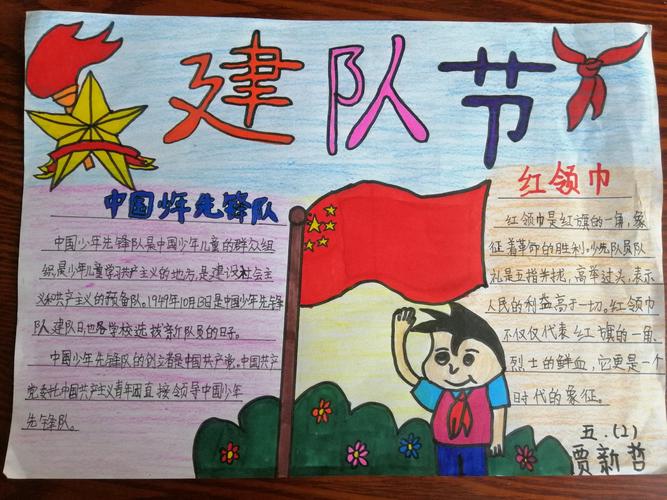 建队节
中国少年先锋队
中国少年先锋队是中国少年儿童的群众组
织是少年儿童学习共产主义的地方,是建设社会主
义和共产主义的预备队。1949年10月13日是中国少年先锋
队建队日也各学校选拔新队员的日子。
中国少年先锋队的创立者是中国共产党。中国共产
党委托中国共产主义青年团直接领导中国少年
先锋队。
红领巾
红领巾是红旗的一角,象
征着革命的胜利。少先队员队
礼是五指并拢,高举过头,表示
人民的利益高于一切。红领巾
不仅仅代表红旗的一角、
烈士的鲜血,它更是一个
时代的象征。
五.(2)
贾新哲